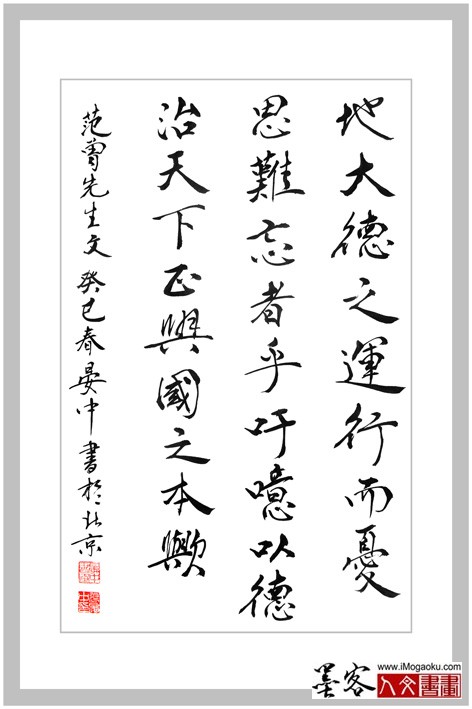 地大德之運行而憂
思難忘者乎吁噫以德
治天下正興國之本歟
范曾先生文 癸巳春晏中書於北京
墨客
www.iMogaoku.com
人文書畫